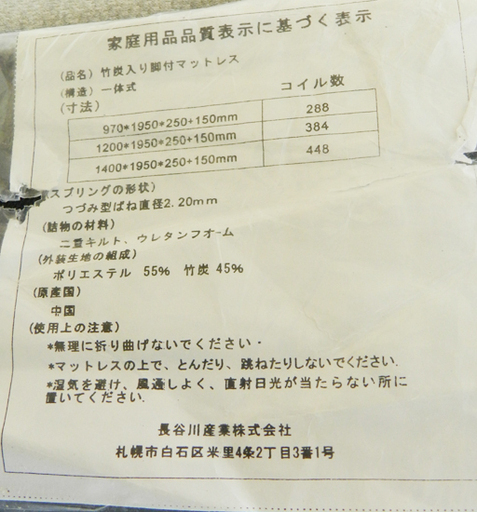 家庭用品品質表示に基づく表示
(品名) 竹炭入り脚付マットレス
(構造) 一体式
(寸法)
コイル数
970*1950*250+150mm 288
1200*1950*250+150mm 384
1400*1950*250+150mm 448
スプリングの形状)
つづみ型ばね直径2.20mm
(詰物の材料)
二重キルト、ウレタンフオーム
(外装生地の組成)
ポリエステル 55% 竹炭 45%
(原産国)
中国
(使用上の注意)
*無理に折り曲げないでください・
*マットレスの上で、とんだり、跳ねたりしないでください.
*湿気を避け、風通しよく、直射日光が当たらない所に
置いてください.
長谷川産業株式会社
札幌市白石区米里4条2丁目3番1号